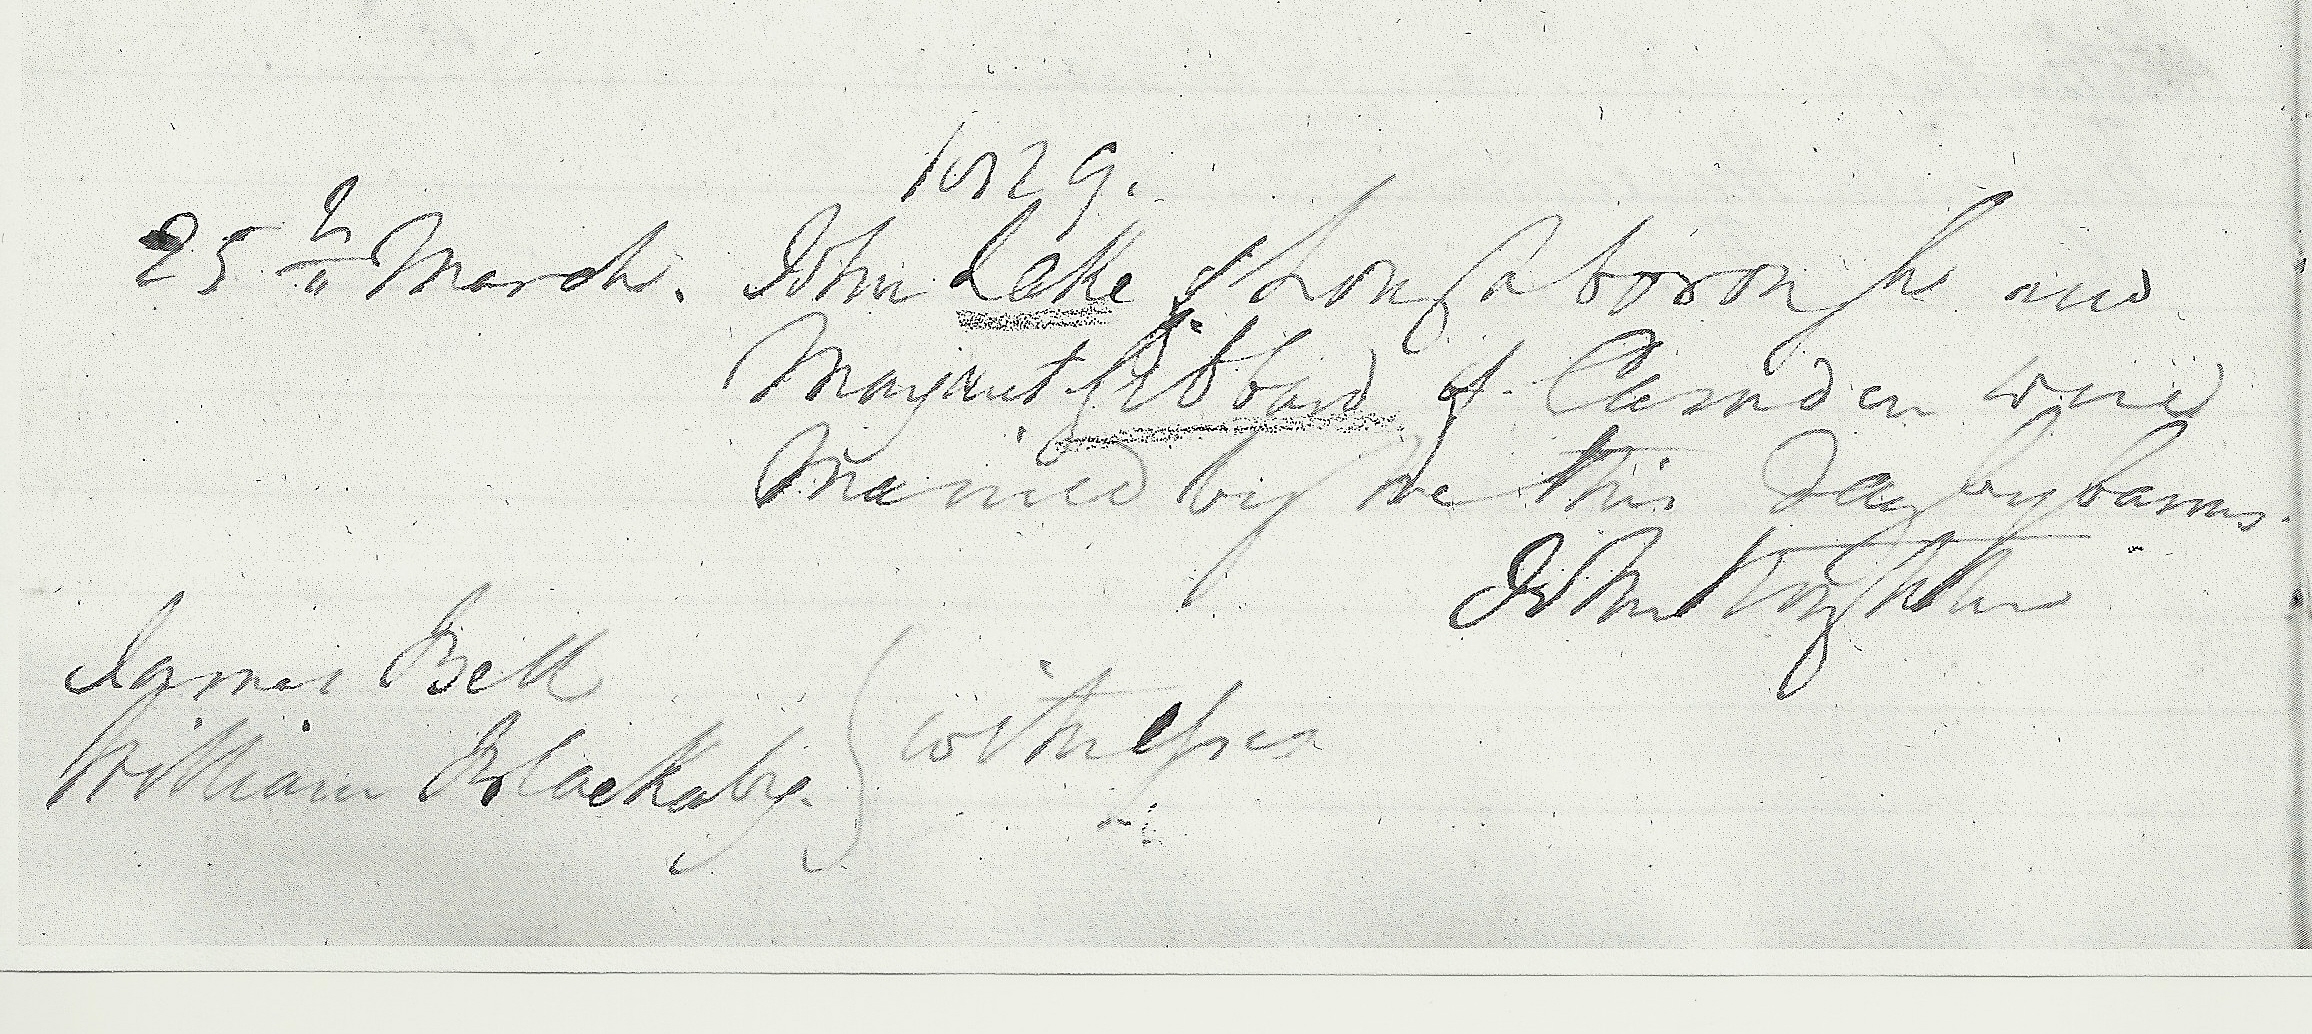 1829.
25th March. John Lake of Loughborough and
Margaret Gibbard of Camden were
Married by me this Day by banns.
John Stoughton
James Bell
William Blackaby } witnesses